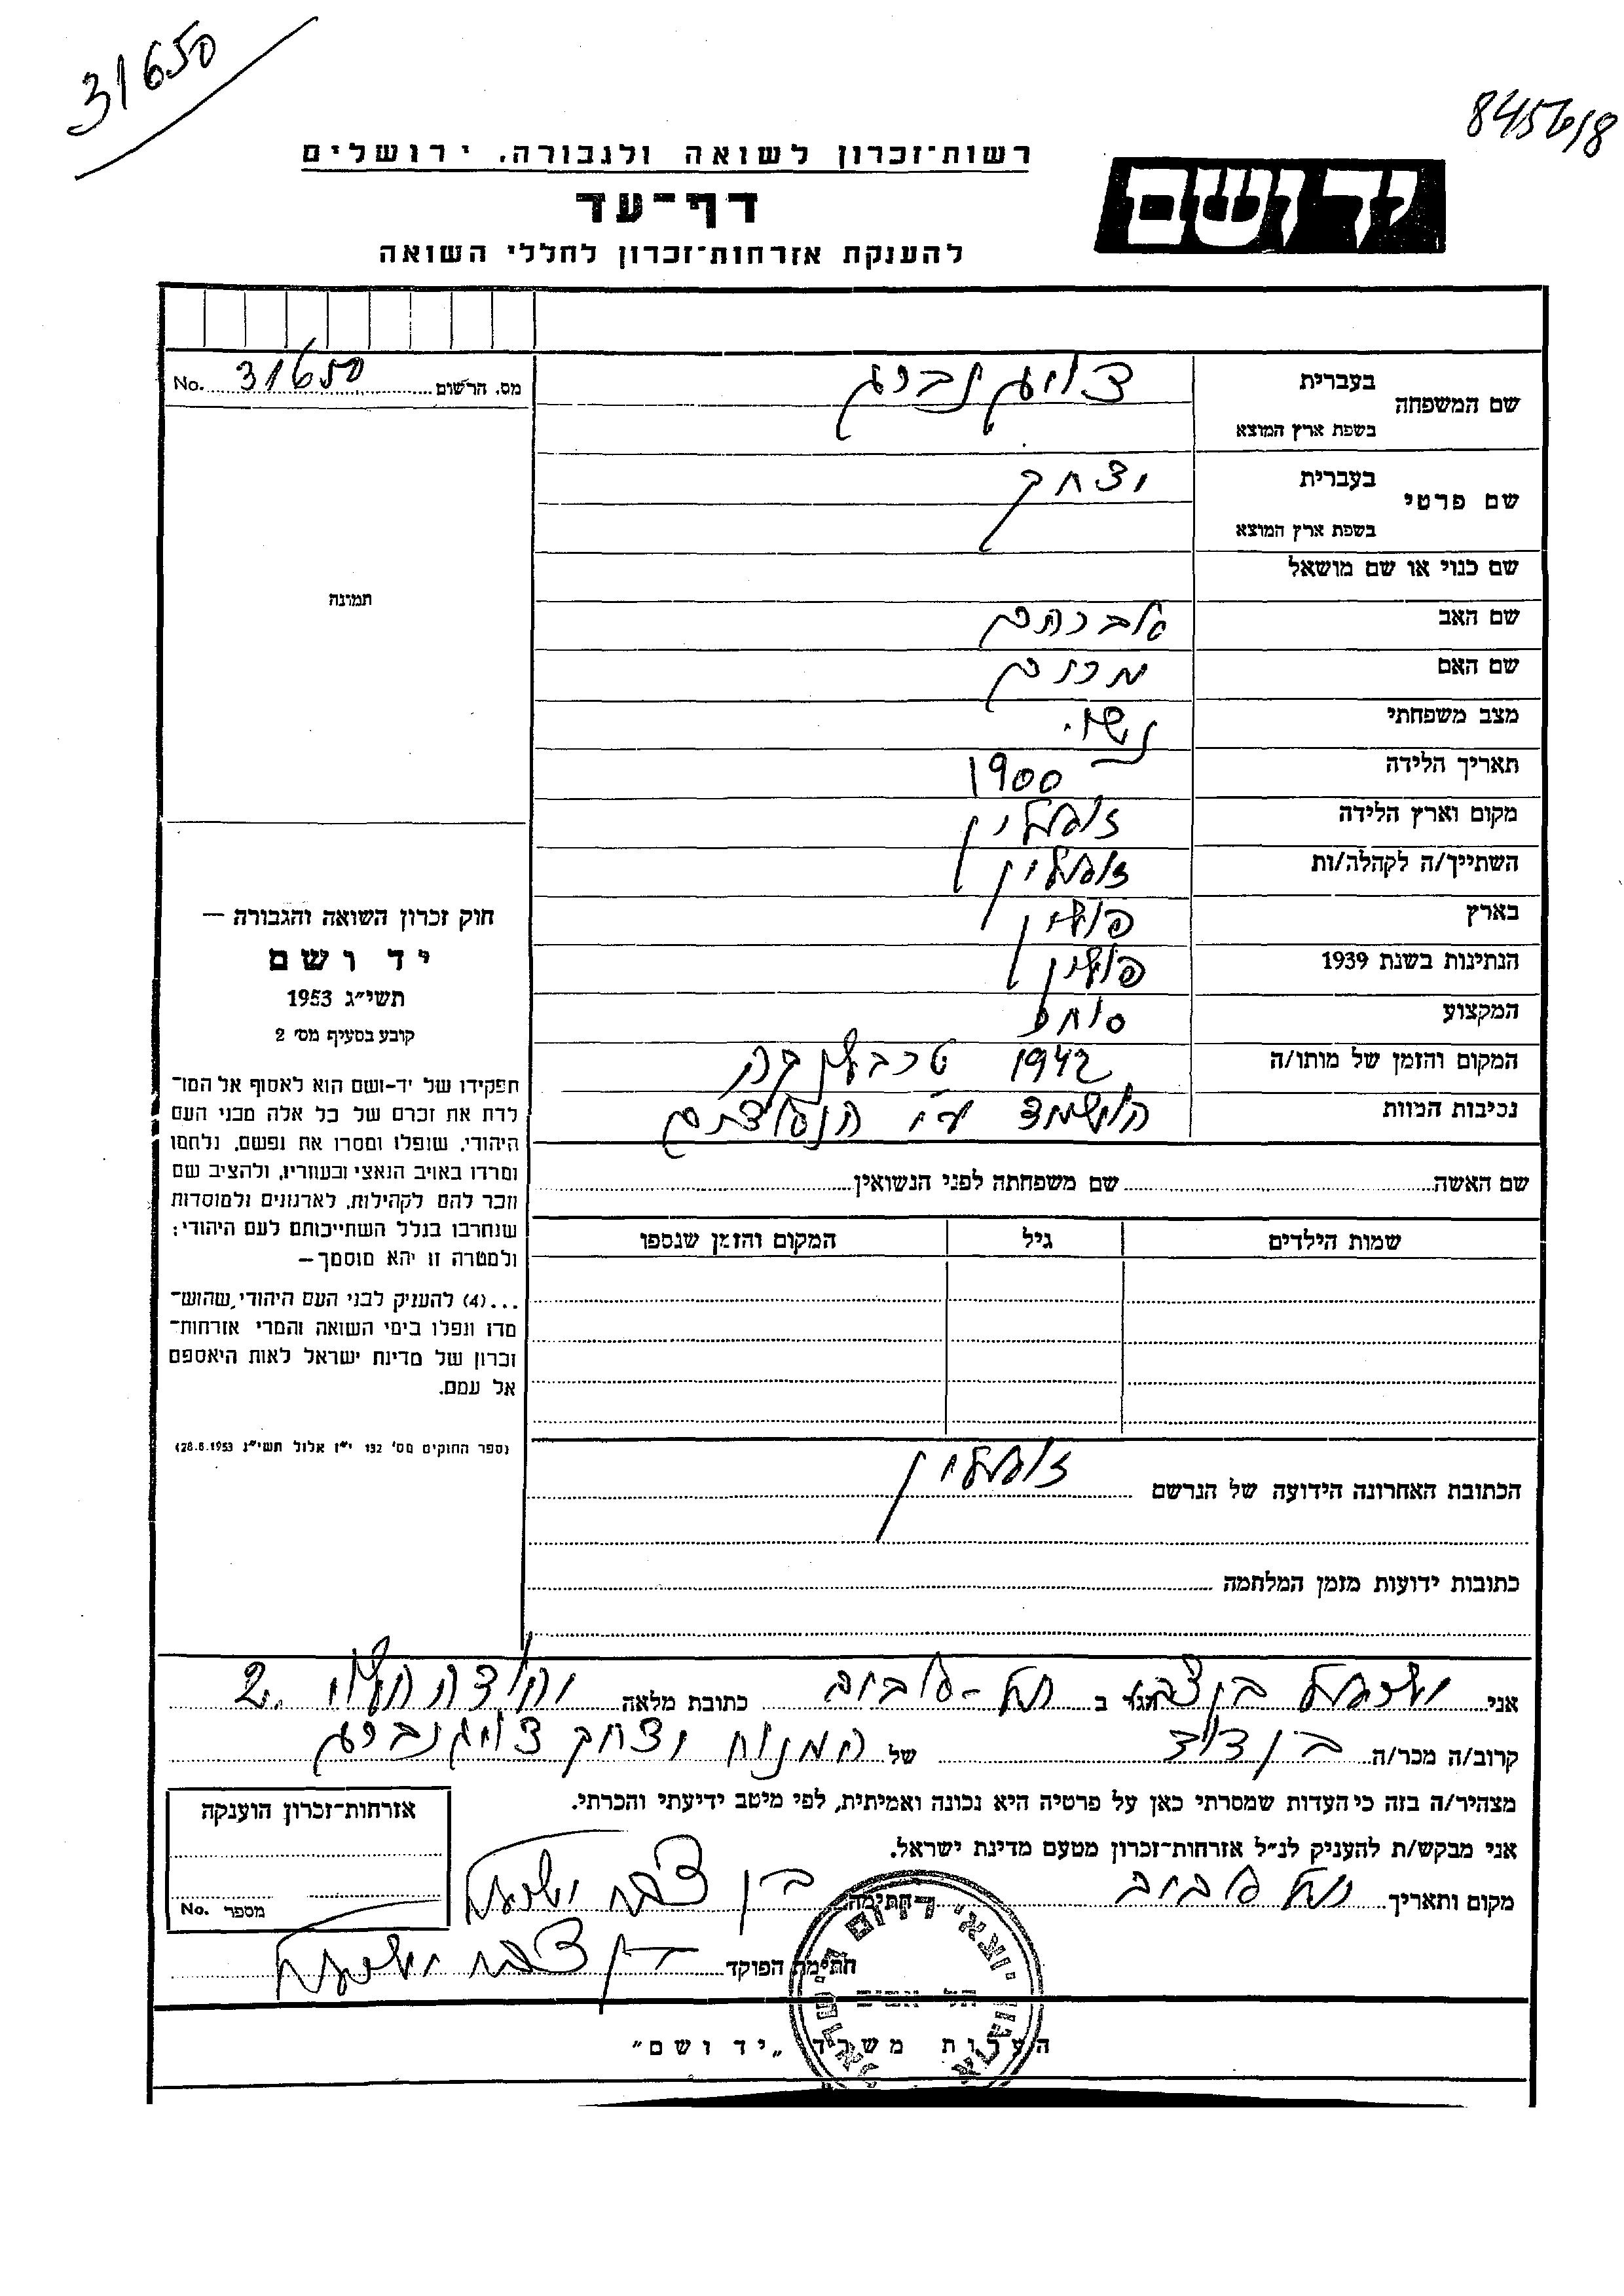 31650
845618
רשות־זכרון לשואה ולגבורה, ירושלים
יד ושם
דף־עד
להענקת אזרחות־זכרון לחללי השואה
מס. הרשום 31650 No.
שם המשפחה
בעברית
בשפת ארץ המוצא
שם פרטי
בעברית יצחק
בשפת ארץ המוצא
שם כנוי או שם מושאל
שם האב אברהם
שם האם מרים
מצב משפחתי נשוי
תאריך הלידה 1900
מקום וארץ הלידה
השתייך/ה לקהלה/ות
בארץ פולין
הנתינות בשנת 1939 פולין
המקצוע סוחר
המקום והזמן של מותו/ה 1942 טרבלינקה
נסיבות המוות הושמד ע״י הנאצים
שם האשה שם משפחתה לפני הנשואין
שמות הילדים גיל המקום והזמן שנספו
הכתובת האחרונה הידועה של הנרשם
כתובות ידועות מזמן המלחמה
תמונה
חוק זכרון השואה והגבורה —
יד ושם
תשי״ג 1953
קובע בסעיף מס׳ 2
תפקידו של יד־ושם הוא לאסוף אל המו־
לדת את זכרם של כל אלה מבני העם
היהודי, שנפלו ומסרו את נפשם, נלחמו
ומרדו באויב הנאצי ובעוזריו, ולהציב שם
וזכר להם לקהילות, לארגונים ולמוסדות
שנחרבו בגלל השתייכותם לעם היהודי;
ולמטרה זו יהא מוסמך—
...(4) להעניק לבני העם היהודי, שהוש־
מדו ונפלו בימי השואה והמרי אזרחות־
זכרון של מדינת ישראל לאות היאספם
אל עמם.
(ספר החוקים מס׳ 132 י״ז אלול תשי״ג 28.8.1953)
אני הגר ב תל-אביב כתובת מלאה יהודה הלוי 2
קרוב/ה מכר/ה בן דוד של המנוח יצחק
מצהיר/ה בזה כי העדות שמסרתי כאן על פרטיה היא נכונה ואמיתית, לפי מיטב ידיעתי והכרתי.
אני מבקש/ת להעניק לנ״ל אזרחות־זכרון מטעם מדינת ישראל.
מקום ותאריך תל אביב חתימה
חתימת הפוקד
אזרחות־זכרון הוענקה
מספר No.
תל אביב
הערות משרד „יד ושם״